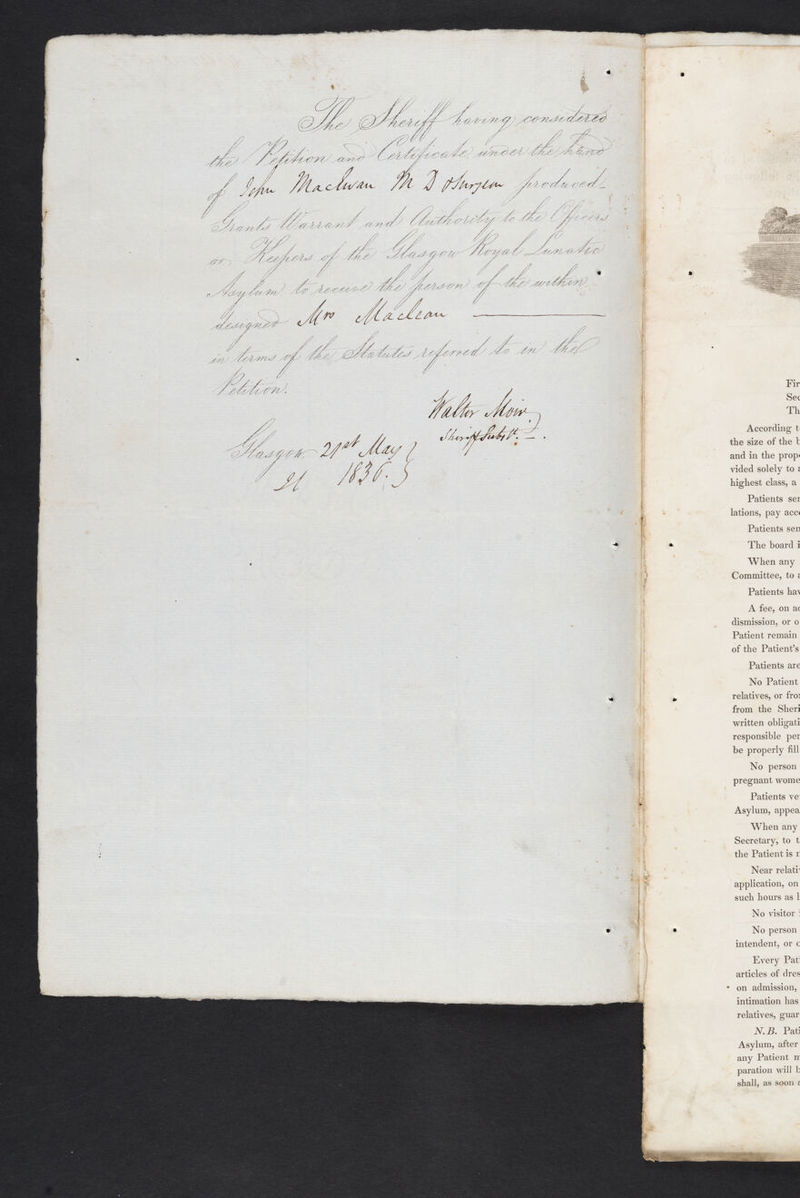 The Sheriff having considered
the Petition and Certificate under the hand
of John Macewan M D & Surgeon produced
Grants Warrant and Authority to the Officers
or Keepers of the Glasgow Royal Lunatic
Asylum to receive the person of the within
designed Mrs Maclean
in terms of the Statutes referred to in the
Petition.
Walter Moir
Sheriff Subst.
Glasgow 21st May
21 1836.
Fir
Sec
Th
According t
the size of the b
and in the prop
vided solely to
highest class, a
Patients sen
lations, pay acc
Patients sen
The board i
When any
Committee, to
Patients hav
A fee, on a
dismission, or o
Patient remain
of the Patient's
Patients are
No Patient
relatives, or fro
from the Sheri
written obligati
responsible per
be properly fill
No person
pregnant wome
Patients ve
Asylum, appea
When any
Secretary, to t
the Patient is
Near relati
application, on
such hours as
No visitor
No person
intendent, or
Every Pat
articles of dres
on admission,
intimation has
relatives, guar
N.B. Pati
Asylum, after
any Patient
paration will
shall, as soon